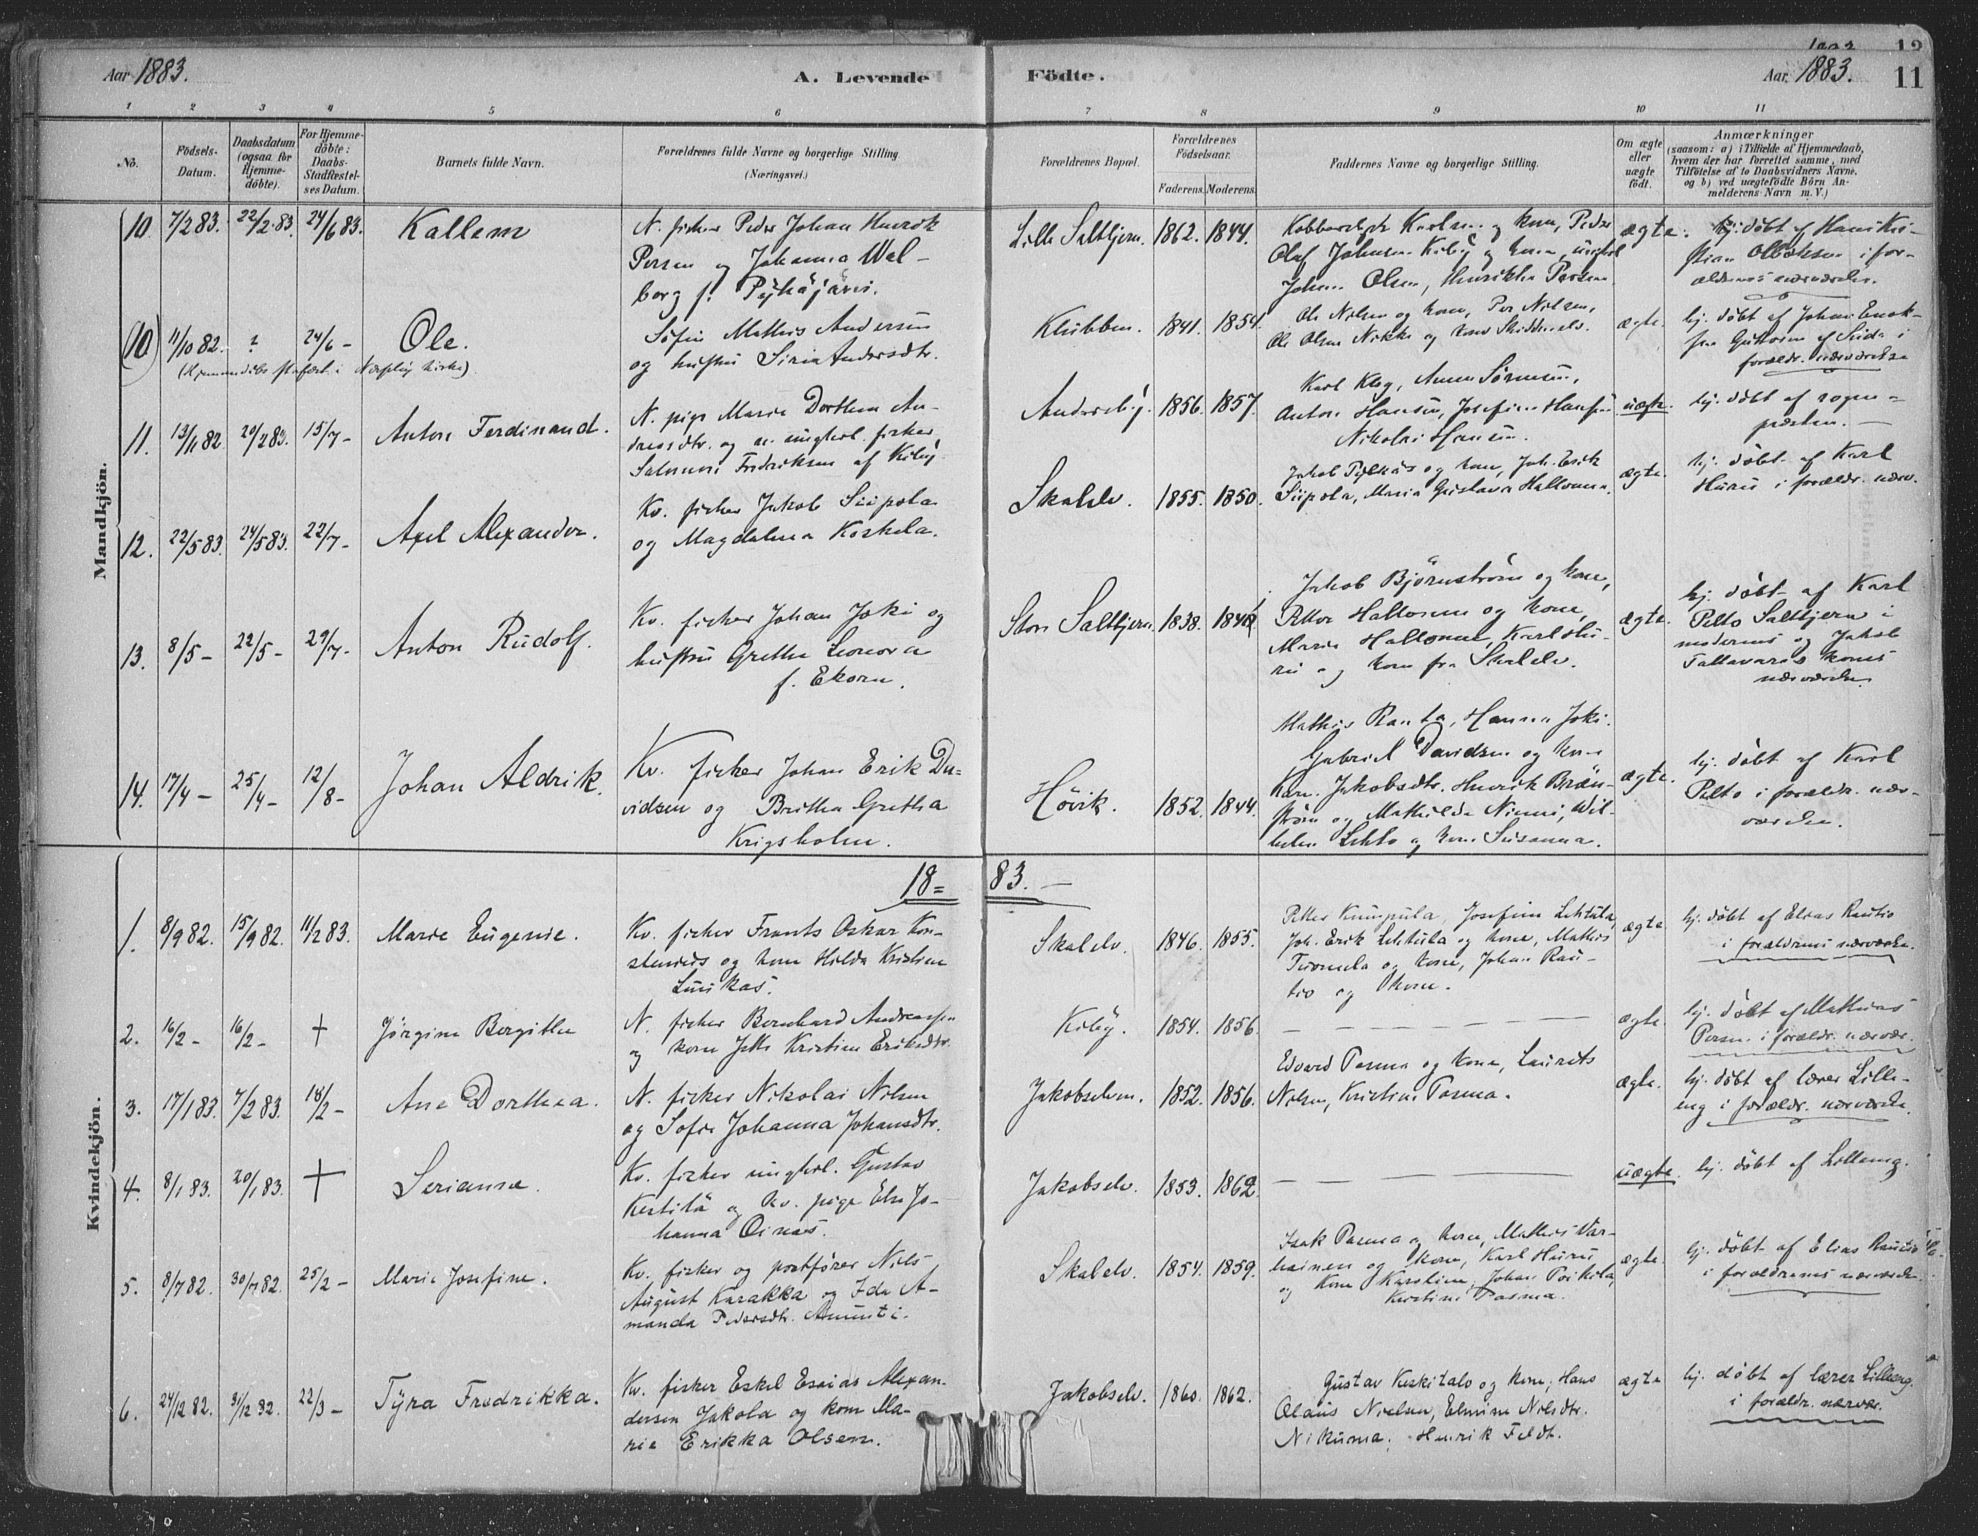 Aar 1883.
A. Levende
Födte.
1883
12
Aar 1883.
11
1 2 3 4 5 6 7 8 9 10 11
No.
Födsels-Datum.
Daabsdatum (ogsaa for Hjemme-döbte).
For Hjemme-döbte: Daabs-Stadfæstel-ses Datum.
Barnets fulde Navn.
Forældrenes fulde Navne og borgerlige Stilling (Næringsvei.)
Forældrenes Bopæl.
Forældrenes Födselsaar.
Faderens. Moderens.
Faddernes Navne og borgerlige Stilling.
Om ægte eller uægte födt.
Anmærkninger
(saasom: a) i Tilfælde af Hjemmedaab,
hvem der har forrettet samme, med
Tilföielse af to Daabsvidners Navne,
og b) ved uægtefödte Börn An-
melderens Navn m. V.)
Mandkjön.
10. 7/2 83. 22/2 83. 24/6 83. Kallem
N. fisker Peder Johan Henrik
Persen og Johanna Wal-
borg f. Pyhäjärvi.
Lille Saltbjern. 1862. 1844.
Karlsen og kone, Peder
Olaf Johnsen Kiby og kone, ungkarl
Johan Olsen, Henrikke Persen
ægte.
hj. døbt af Hans Kri-
stian i for-
ældrenes nærværelse.
(10) 11/10 82. ? 24/6 - Ole.
(Hjemmedøbt stadfæst i Næsseby kirke)
Søfin Mathis Andersen
og hustru Siria Andersdtr.
Klubben. 1841. 1854.
Ole Nilsen og kone, Per Nilsen,
Ole Olsen Nikke og kone
ægte.
hj. døbt af Johan Enok-
sen i
forældr. nærværelse
11. 13/11 82. 20/2 83. 15/7 - Anton Ferdinand.
N. pige Marie Dorthea An-
dreasdtr. og n. ungkarl fisker
Salomon Fredriksen af Kiby.
Andersby. 1856. 1857.
Karl Kley, Anna Sørensen,
Anton Hansen, Josefine Hansen
Nikolai Hansen.
uægte.
hj. døbt af sogne-
præsten. —
12. 22/5 83. 24/5 83. 22/7 - Axel Alexander.
Kv. fisker Jakob Siipola
og Magdalena Koskela.
Skalelv. 1855. 1850.
Jakob og kone, Joh. Erik
Siipola, Maria Gustava Hallonen.
ægte.
hj. døbt af Karl
Huru i forældr. nærv.
13. 8/5 - 22/5 - 29/7 - Anton Rudolf.
Kv. fisker Johan Joki og
hustru Gretha Leonora
f. Ekorn.
Store Saltbjern. 1838. 1841
Jakob Bjørnstrøm og kone,
Petter Hallonen og kone,
Maria Hallonen, Karl Hu-
ru og kone fra Skalelv.
ægte.
hj. døbt af Karl
Pelto Saltbjern i
moderens og Jakob
Tallavaras kones
nærværelse.
14. 17/4 - 25/4 - 12/8 - Johan Aldrik.
Kv. fisker Johan Erik Da-
vidsen og Britha Gretha
Krigsholm.
Høvik. 1852. 1844.
Mathis Ranta, Hanna Joki.
Gabriel Davidsen og kone
Karen Jakobsdtr. Henrik Brän-
strøm og Mathilda Niemi, Wil-
helm Lehto og kone Susanna.
ægte.
hj. døbt af Karl
Pelto i forældr. nær-
værelse.
18= 83. —
Kvindekjön.
1. 8/9 82. 15/9 82. 11/2 83. Marie Eugenie.
Kv. fisker Frants Oskar Kon-
stenius og kone Hilda Kristine
Luukas.
Skalelv. 1846. 1855.
Petter Kumpula, Josefine Lehtula,
Joh. Erik Lehtula og kone, Mathis
Tuomela og kone, Johan Rau-
tio og kone.
ægte.
hj. døbt af Elias Rautio
i forældrenes nærværelse.
2. 16/2 - 16/2 - + Jørgine Bergithe
N. fisker Bernhard Andreassen
og kone Jette Kristine Eriksdtr.
Kiby. 1854. 1856.
— — — — —
ægte.
hj. døbt af Mathias
Persen i forældr. nærvær.
3. 17/1 83. 7/2 83. 18/2 - Ane Dorthea.
N. fisker Nikolai Nilsen
og Sofie Johanna Johansdtr.
Jakobselven. 1852. 1856.
Edvard Pasma og kone, Laurits
Nilsen, Kristine Pasma.
ægte.
hj. døbt af lærer Lille-
eng i forældr. nærværelse.
4. 8/1 83. 20/1 83. + Serianna.
Kv. fisker ungkarl Gustav
Kestilä og kv. pige Elsa Jo-
hanna Oinas.
Jakobselv. 1853. 1862.
— — — —
uægte.
hj. døbt af Lilleeng.
5. 8/7 82. 30/7 82. 25/2 - Marie Josefine.
Kv. fisker og postfører Nils
August Karakka og Ida A-
manda Pedersdtr. Anunti.
Skalelv. 1854. 1859.
Isak Pasma og kone, Mathis Var-
hainen og kone, Karl Huru
og kone Karoline, Johan Poikela,
Kristine Pasma.
ægte.
hj. døbt af Elias Rautio
i forældrenes nærværelse.
6. 24/12 82. 31/12 82. 22/3 - Tyra Fredrikka.
Kv. fisker Eskel Esaias Alexan-
dersen Jakola og kone Ma-
rie Erikka Olsen.
Jakobselv. 1860. 1862.
Gustav Keskitalo og kone, Hans
Olaus Nielsen, Elmine Nilsdtr.
Nikuma, Henrik Feldt.
ægte
hj. døbt af lærer Lilleeng.
i forældr. nærvær.